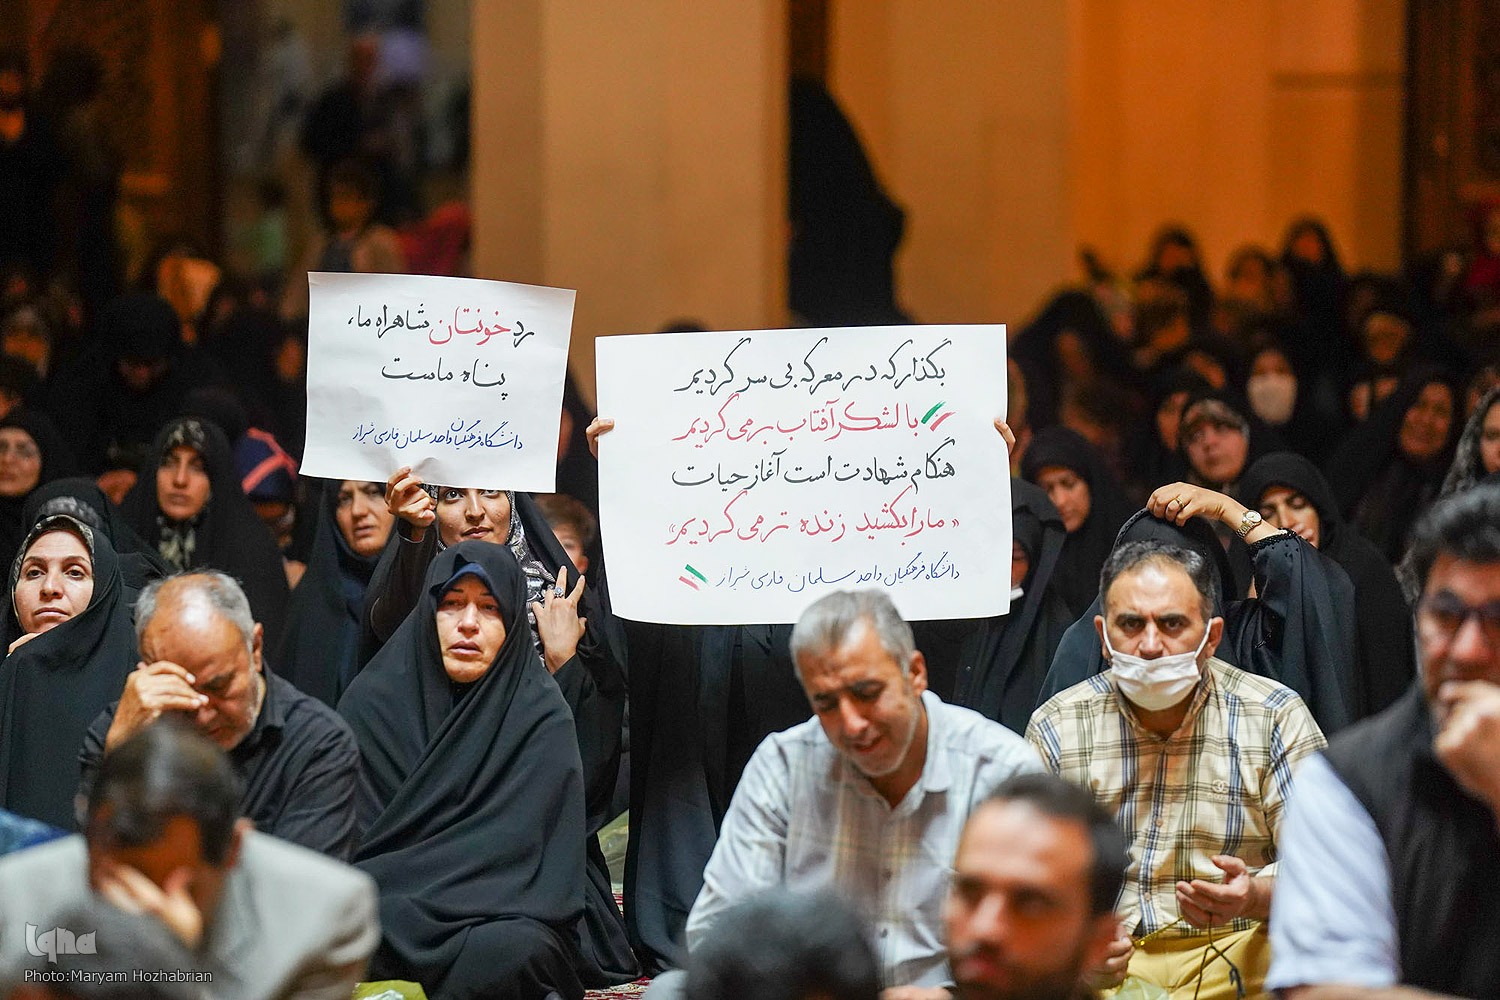 رد خونتان شاهراه ما،
پناه ماست
دانشگاه فرهنگیان واحد سلمان فارسی شیراز
بگذار که در معرکه بی سر گردیم
با لشکر آفتاب برمی گردیم
هنگام شهادت است آغاز حیات
« ما را بکشید زنده تر می گردیم »
دانشگاه فرهنگیان واحد سلمان فارسی شیراز
Iqna
Photo:Maryam Hozhabrian